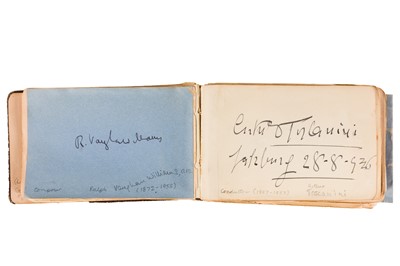 R. Vaughan Williams
Composer
Ralph Vaughan Williams,
(1872-1958)
Arturo Toscanini
Salzburg 28-8-936
Conductor (1867-1957)
Arturo
Toscanini